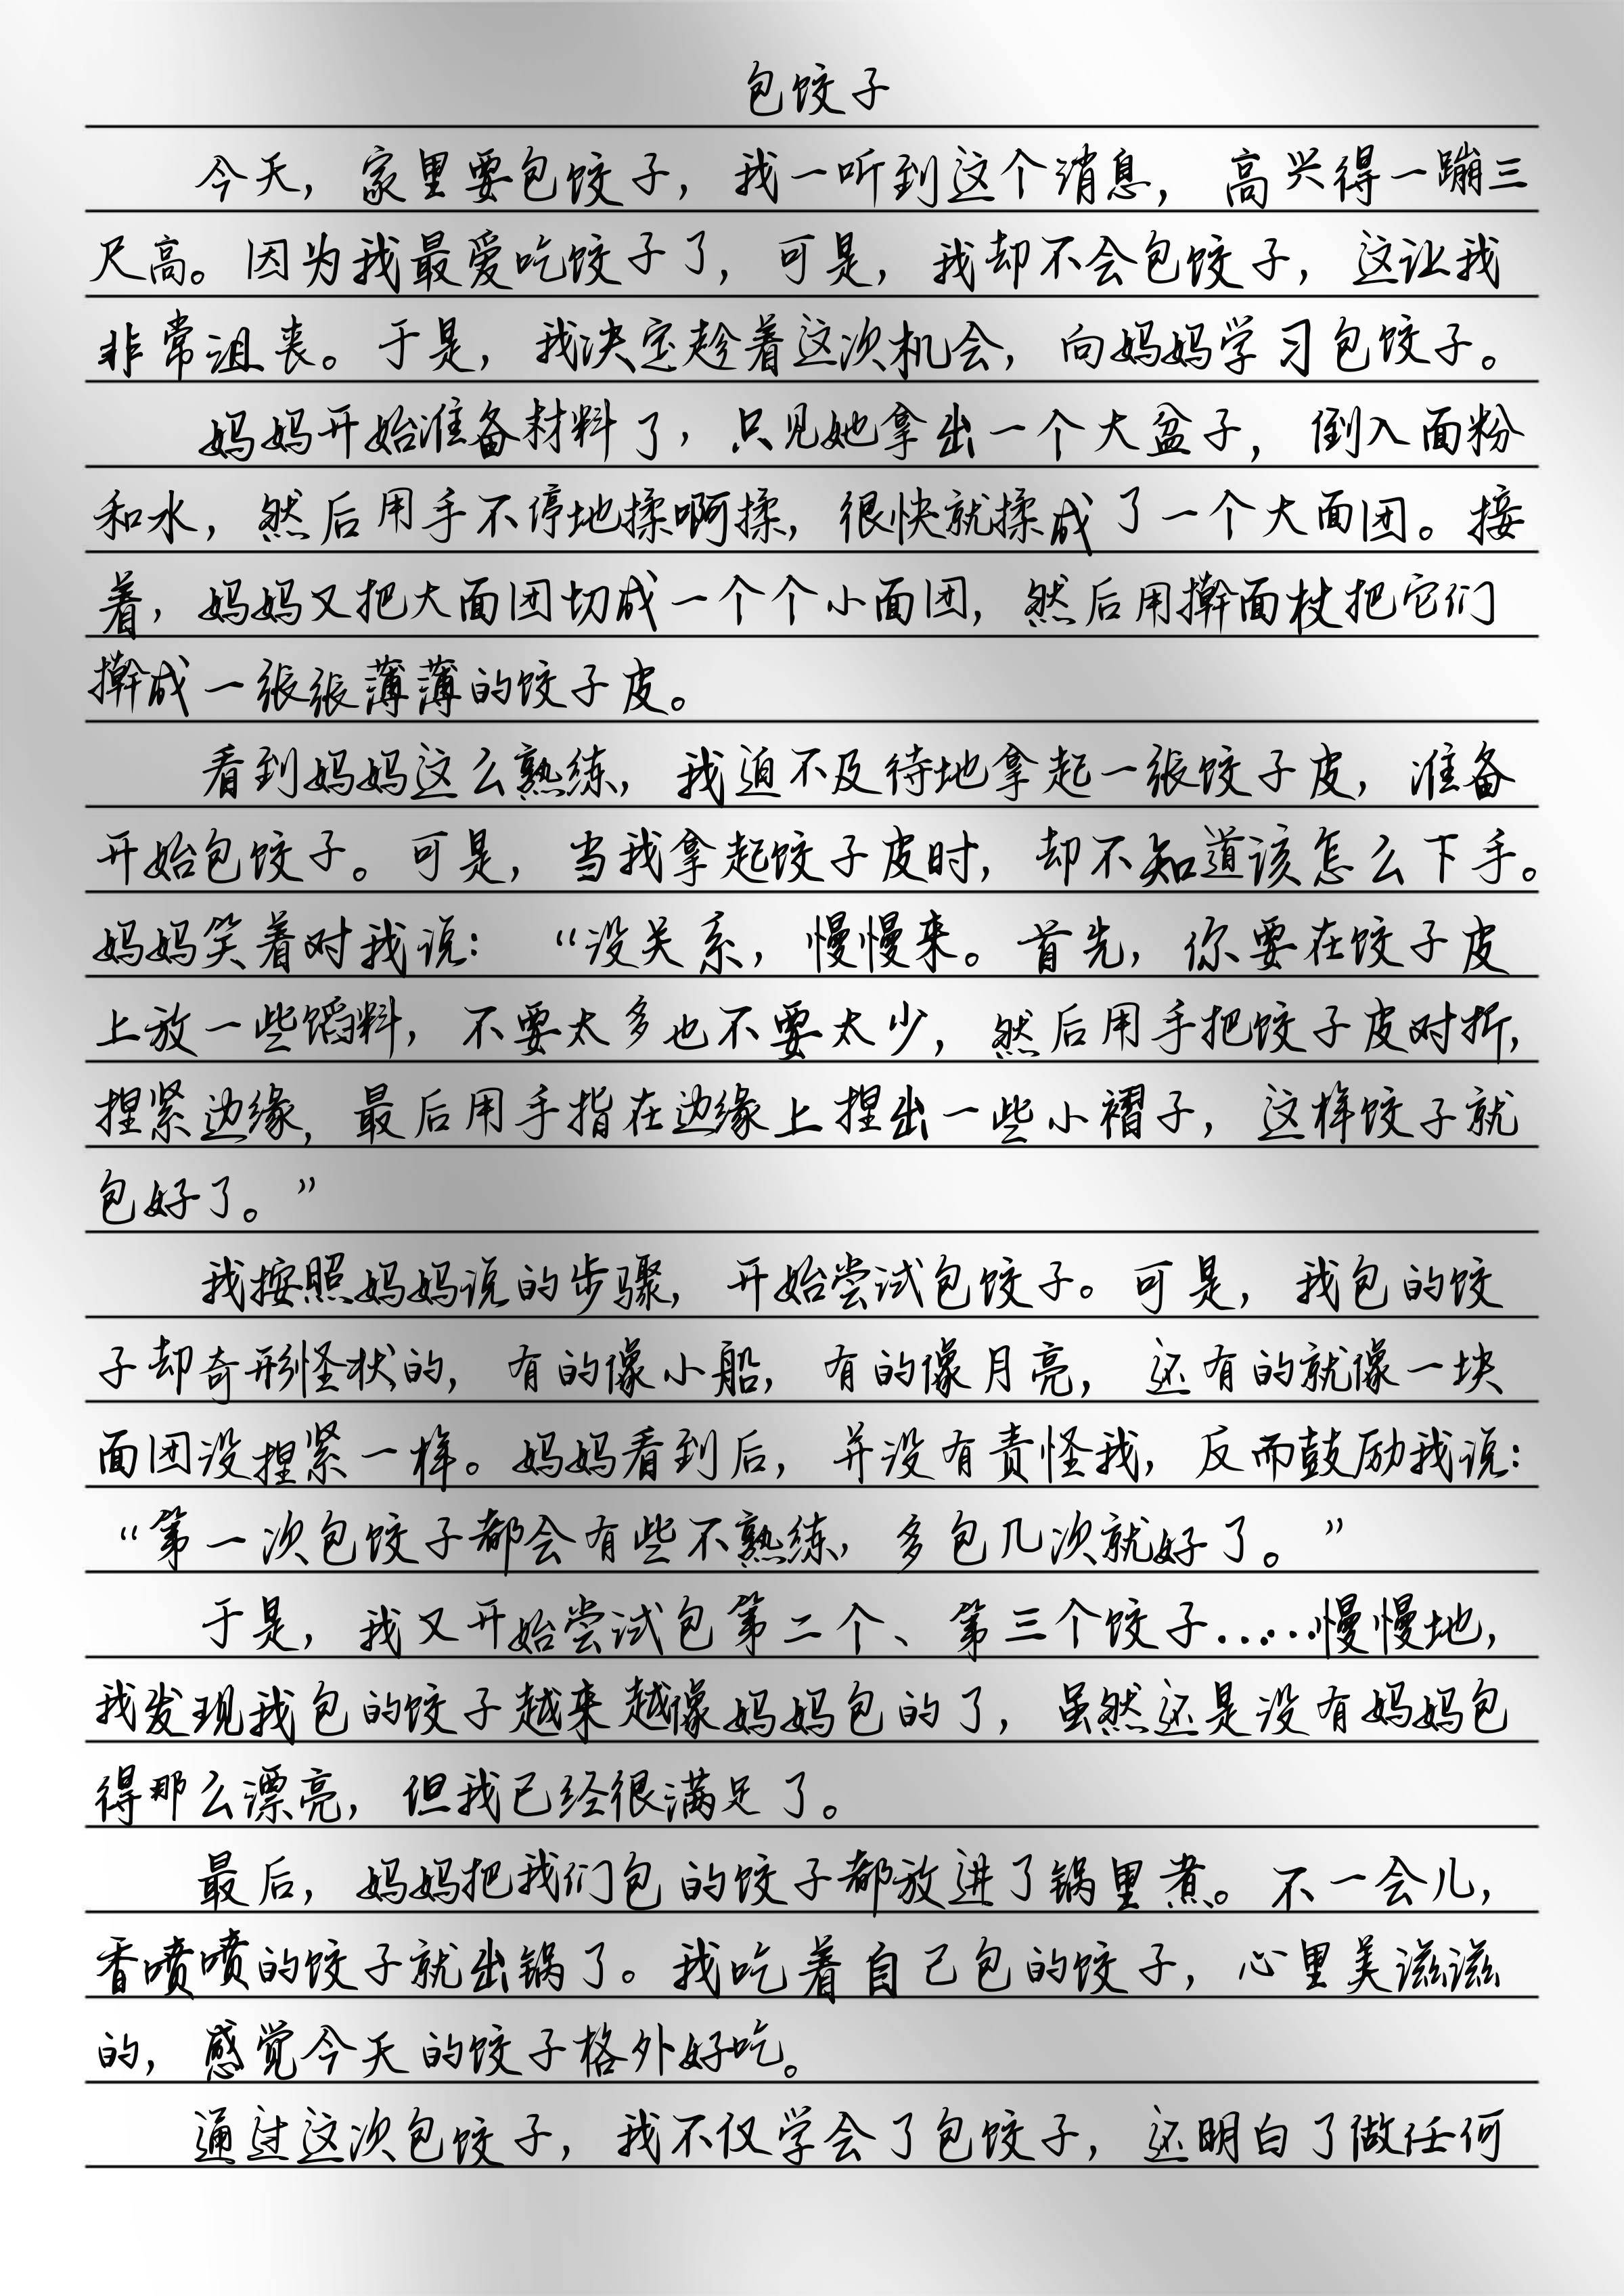 包饺子
今天，家里要包饺子，我一听到这个消息，高兴得一蹦三
尺高。因为我最爱吃饺子了，可是，我却不会包饺子，这让我
非常沮丧。于是，我决定趁着这次机会，向妈妈学习包饺子。
妈妈开始准备材料了，只见她拿出一个大盆子，倒入面粉
和水，然后用手不停地揉啊揉，很快就揉成了一个大面团。接
着，妈妈又把大面团切成一个个小面团，然后用擀面杖把它们
擀成一张张薄薄的饺子皮。
看到妈妈这么熟练，我迫不及待地拿起一张饺子皮，准备
开始包饺子。可是，当我拿起饺子皮时，却不知道该怎么下手。
妈妈笑着对我说：“没关系，慢慢来。首先，你要在饺子皮
上放一些馅料，不要太多也不要太少，然后用手把饺子皮对折，
捏紧边缘，最后用手指在边缘上捏出一些小褶子，这样饺子就
包好了。”
我按照妈妈说的步骤，开始尝试包饺子。可是，我包的饺
子却奇形怪状的，有的像小船，有的像月亮，还有的就像一块
面团没捏紧一样。妈妈看到后，并没有责怪我，反而鼓励我说：
“第一次包饺子都会有些不熟练，多包几次就好了。”
于是，我又开始尝试包第二个、第三个饺子……慢慢地，
我发现我包的饺子越来越像妈妈包的了，虽然还是没有妈妈包
得那么漂亮，但我已经很满足了。
最后，妈妈把我们包的饺子都放进了锅里煮。不一会儿，
香喷喷的饺子就出锅了。我吃着自己包的饺子，心里美滋滋
的，感觉今天的饺子格外好吃。
通过这次包饺子，我不仅学会了包饺子，还明白了做任何